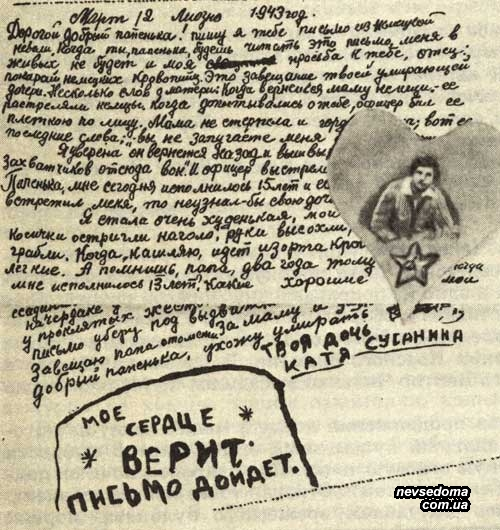 Март, 12 Лиозно 1943 год.
Дорогой добрый папенька! пишу я тебе письмо из немецкой
неволи. Когда ты, папенька, будешь читать это письмо, меня в
живых не будет и моя просьба к тебе, отец:
покарай немецких кровопийц. Это завещание твоей умирающей
дочери. Несколько слов о матери. Когда вернешься маму не ищи. ее
растреляли немцы. Когда допытывались о тебе, офицер бил ее
плеткою по лицу. Мама не стерпела и гордо вот ее
последние слова: „вы не запугаете меня
Я уверена он вернется назад и вышвы
захватчиков отсюда вон." И офицер выстрел
Папенька, мне сегодня исполнилось 15 лет и ес
встретил меня, то неузнал бы свою доч
Я стала очень худенькая, мои
Косички остригли наголо, руки высохли,
грабли. Когда кашляю, идет изорта кро
легкие. А помнишь, папа, два года тому когда
мне исполнилось 13 лет. Какие хорошие мои
ссадин
на чердаке у
у проклятых жест
письмо уберу под
Завещаю папа отомсти за маму и
добрый папенька, ухожу умирать
ТВОЯ ДОЧЬ
КАТЯ СУСАНИНА
МОЕ
СЕРДЦЕ
ВЕРИТ.
ПИСЬМО ДОЙДЕТ.
nevsedoma
com.ua